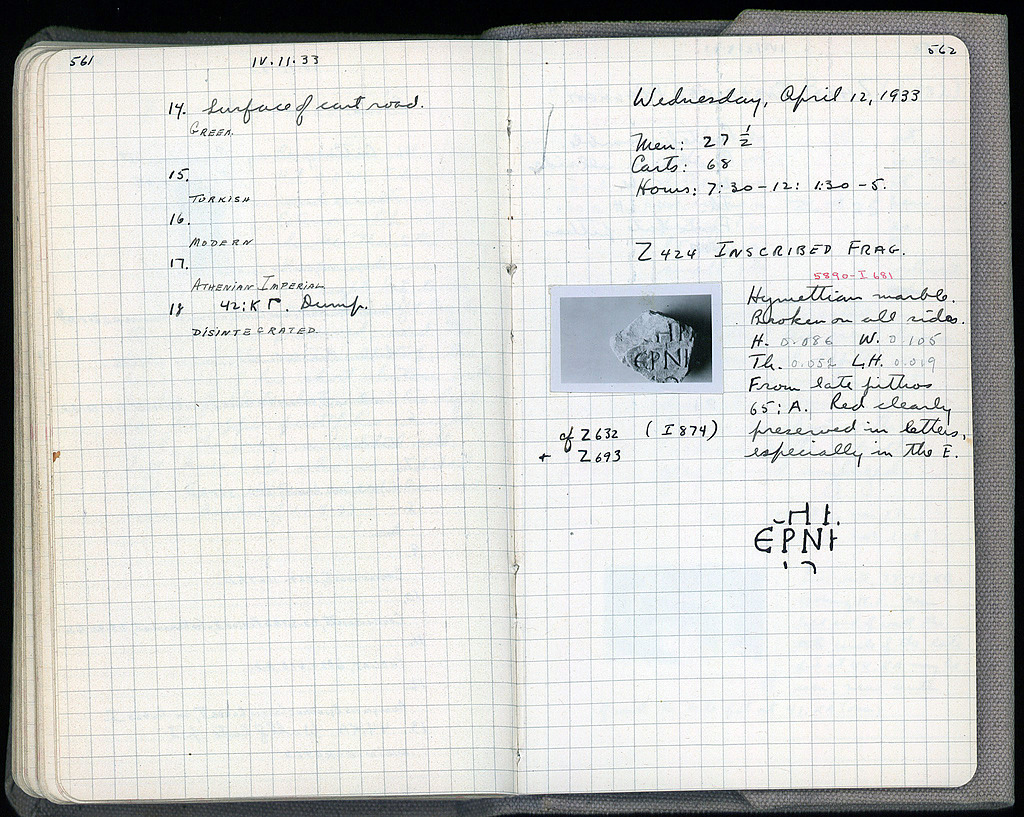 561
IV.11.33
14. Surface of cart road.
GREEK.
15.
TURKISH
16.
MODERN
17.
ATHENIAN IMPERIAL
18 42:ΚΓ. Dump.
DISINTEGRATED.
562
Wednesday, April 12, 1933
Men: 27 1/2
Carts: 68
Hours: 7:30-12: 1:30-5.
Z 424 INSCRIBED FRAG.
5890-I 681
Hymettian marble.
Broken on all sides.
H. 0.086 W. 0.105
Th. 0.052 L.H. 0.019
From late pithos
65:A. Red clearly
preserved in letters,
especially in the E.
ΗΙ
ЄΡΝΙ
cf Z 632 (I 874)
+ Z 693
ΗΙ.
ЄΡΝΙ